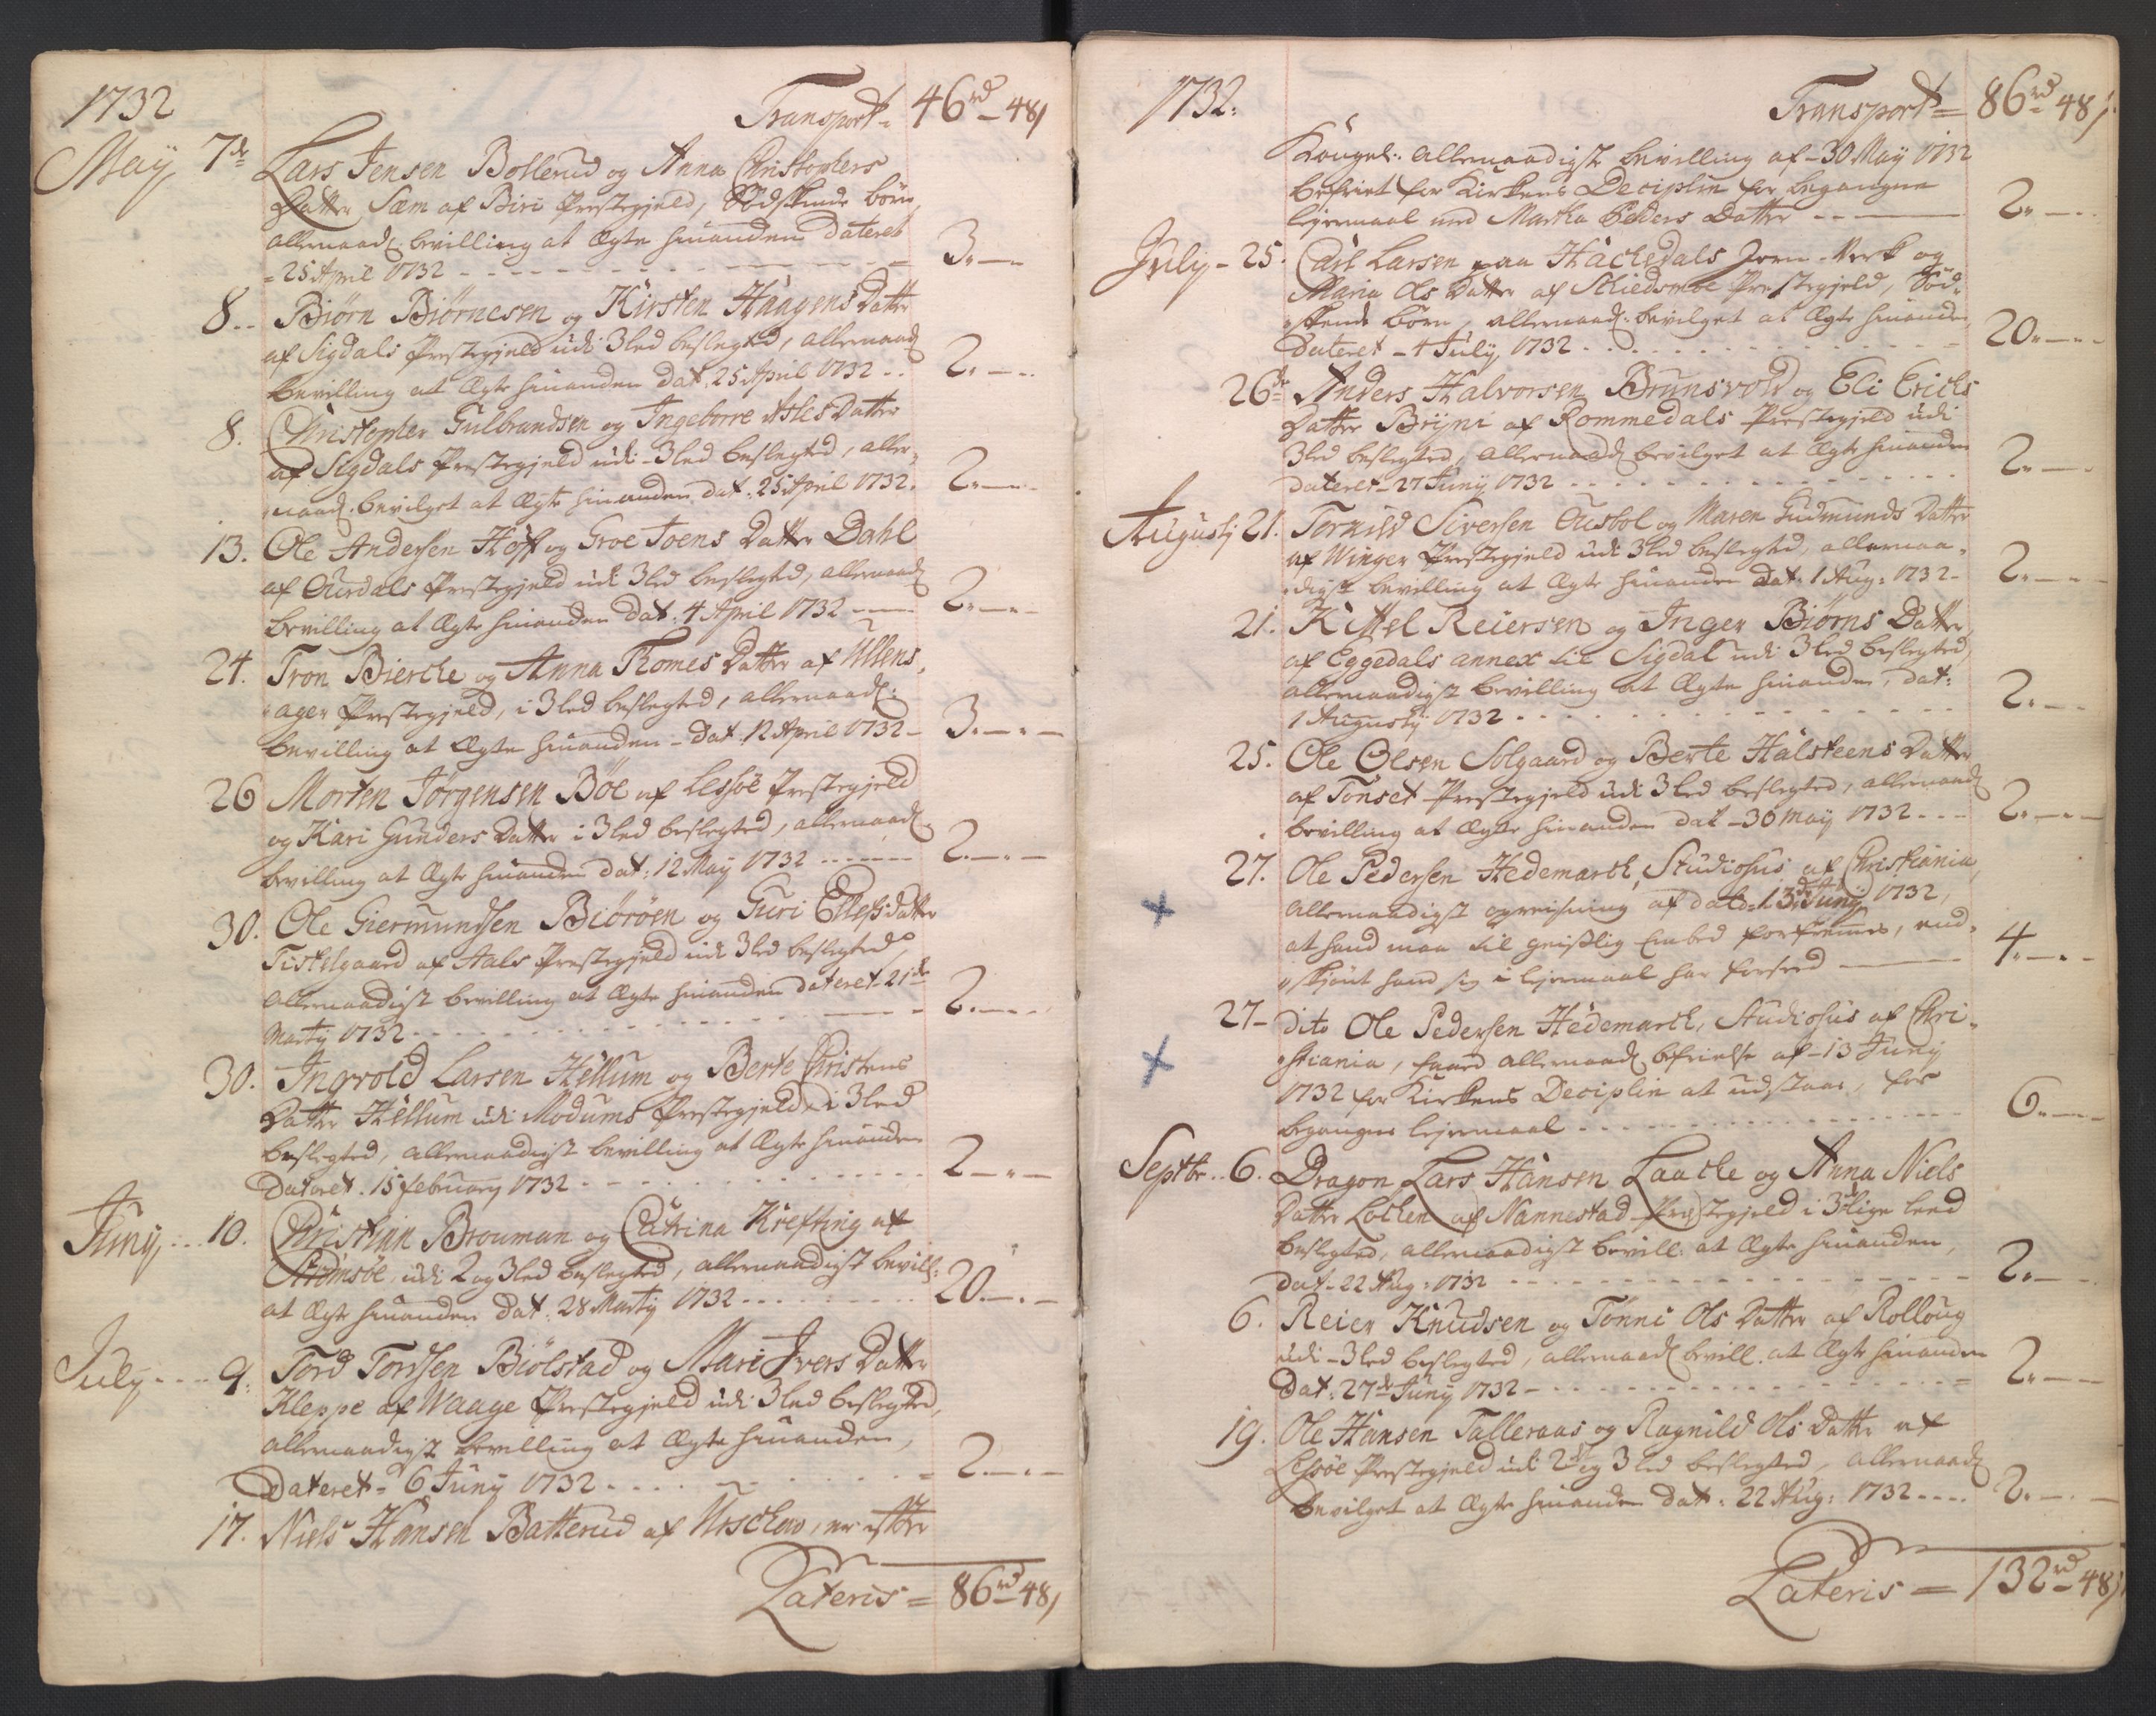 1732
Transport = 46 rd - 48 ſ
May 7de Lars Jensen Bollerud og Anna Christophers
Datter Sæm af Biri Prestegjeld, Sødskende börn,
allernaad: bevilling at Ægte hinanden dateret
25 April 1732 - - - 3 „ -
8 - - Biørn Biørnesen og Kirsten Haagens Datter
af Sigdals Prestegjeld udi 3 led beslegted, allernaad:
bevilling at Ægte hinanden dat. 25 April 1732 - - 2 „ -
8. Christopher Gulbrandsen og Ingeborre Asles Datter
af Sigdals Prestegjeld udi - 3 led beslegted, aller-
naad: bevilget at Ægte hinanden dat: 25 April 1732. 2 „ -
13. Ole Andersen Hoff og Groe Joens Datter Dahl
af Ourdals Prestegjeld udi 3 led beslegted, allernaad:
bevilling at Ægte hinanden dat: 4 April 1732 - - 2 „ -
24. Tron Bierche og Anna Thomes Datter af Ullens-
ager Prestegjeld, i 3 led beslegted, allernaad:
bevilling at Ægte hinanden - dat: 12 April 1732 - 3 „ -
26 Morten Jörgensen Böe af Lessöe Prestegjeld
og Kari Gunders Datter i 3 led beslegted, allernaad:
bevilling at Ægte hinanden dat: 12 May 1732 - - - 2 „ -
30. Ole Giermundsen Biöröen og Guri Ellefs datter
Tistelgaard af Aals Prestegjeld udi 3 led beslegted,
allernaadigst bevilling at Ægte hinanden dateret - 21de
Martij 1732 - - - 2 „ -
30. Ingvold Larsen Hellum og Berte Christens
Datter Hellum udi Modums Prestegjeld, i 3 led
beslegted, allernaadigst bevilling at Ægte hinanden
Dateret. 15 february 1732 - - - 2 „ -
Junij - - 10. Christian Brouman og Catrina Krefting af
Strömsöe, udi 2 og 3 led beslegted, allernaadigst bevill:
at Ægte hinanden dat: 28 Martij 1732 - - - 20 „ -
July - - - 9: Tord Tordsen Biölstad og Mari Ivers Datter
Kleppe af Waage Prestegjeld udi 3 led beslegted,
allernaadigst bevilling at Ægte hinanden,
Dateret - 6 Junij 1732 - - - 2 „ -
17. Niels Hansen Batterud af Urschow, er efter
Lateris = 86 rd - 48 ſ
1732:
Transport = 86 rd - 48 ſ
Kongel: allernaadigste bevilling af - 30 May 1732
befriet for Kirkens Deciplin for begangne
lejermaal med Martha Peders Datter - - - 2 „ -
July - 25. Carl Larsen paa Hackedals Jern-Verk og
Maria Ols Datter af Schiedsmoe Prestegjeld, Söd-
skende börn, allernaad: bevilget at Ægte hinanden
Dateret - 4 July 1732 - - - 20 „ -
26de Anders Halvorsen Brunsvold og Eli Erichs
Datter Bryni af Rommedals Prestegjeld udi
3 led beslegted, allernaad: bevilget at Ægte hinanden
dateret - 27 Juny 1732 - - - 2 „ -
Augustj 21. Tornild Siversen Ousbol og Maren Gudmunds Datter
af Winger Prestegjeld udi 3 led beslegted, allernaa-
digst bevilling at Ægte hinanden dat: 1 Aug: 1732 - 2 „ -
21. Kittel Reiersen og Inger Biørns Datter
af Eggedals annex til Sigdal udi 3 led beslegted
allernaadigst bevilling at Ægte hinanden, dat:
1 Augustij 1732 - - - 2 „ -
25. Ole Olsen Solgaard og Berte Halsteens Datter
af Tönset Prestegjeld udi 3 led beslegted, allernaad:
bevilling at Ægte hinanden dat - 30 May 1732 - - - 2 „ -
27. Ole Pedersen Hedemarck, Studiosus af Christiania,
allernaadigst opreisning af dato - 13de Junij 1732,
at hand maa til geistlig Embed forfremmes, und-
skjönt hand sig i lejermaal har forseed - - - 4 „ -
27 - dito Ole Pedersen Hedemarck, Studiosus af Chri-
stiania, faaed allernaad: befrielse af - 13 Junij
1732 for Kirkens Deciplin at udstaae, for
begangne lejermaal - - - 6 „ -
Septbr. - 6. Dragon Lars Hansen Laache og Anna Niels
Datter Lochen af Nannestad Prestegjeld i 3de lige leed
beslegted, allernaadigst bevill: at Ægte hinanden,
dat - 22 Aug: 1732 - - - 2 „ -
6. Reier Knudsen og Tönni Ols Datter af Rolloug
udi - 3 led beslegted, allernaad: bevill. at Ægte hinanden
Dat: 27de Junij 1732 - - - 2 „ -
19. Ole Hansen Talleraas og Ragnild Ols Datter af
Lessöe Prestegjeld udi 2det og 3 led beslegted, allernaad:
bevilget at Ægte hinanden dat: 22 Aug: 1732 - - - 2 „ -
Lateris = 132 rd - 48 ſ